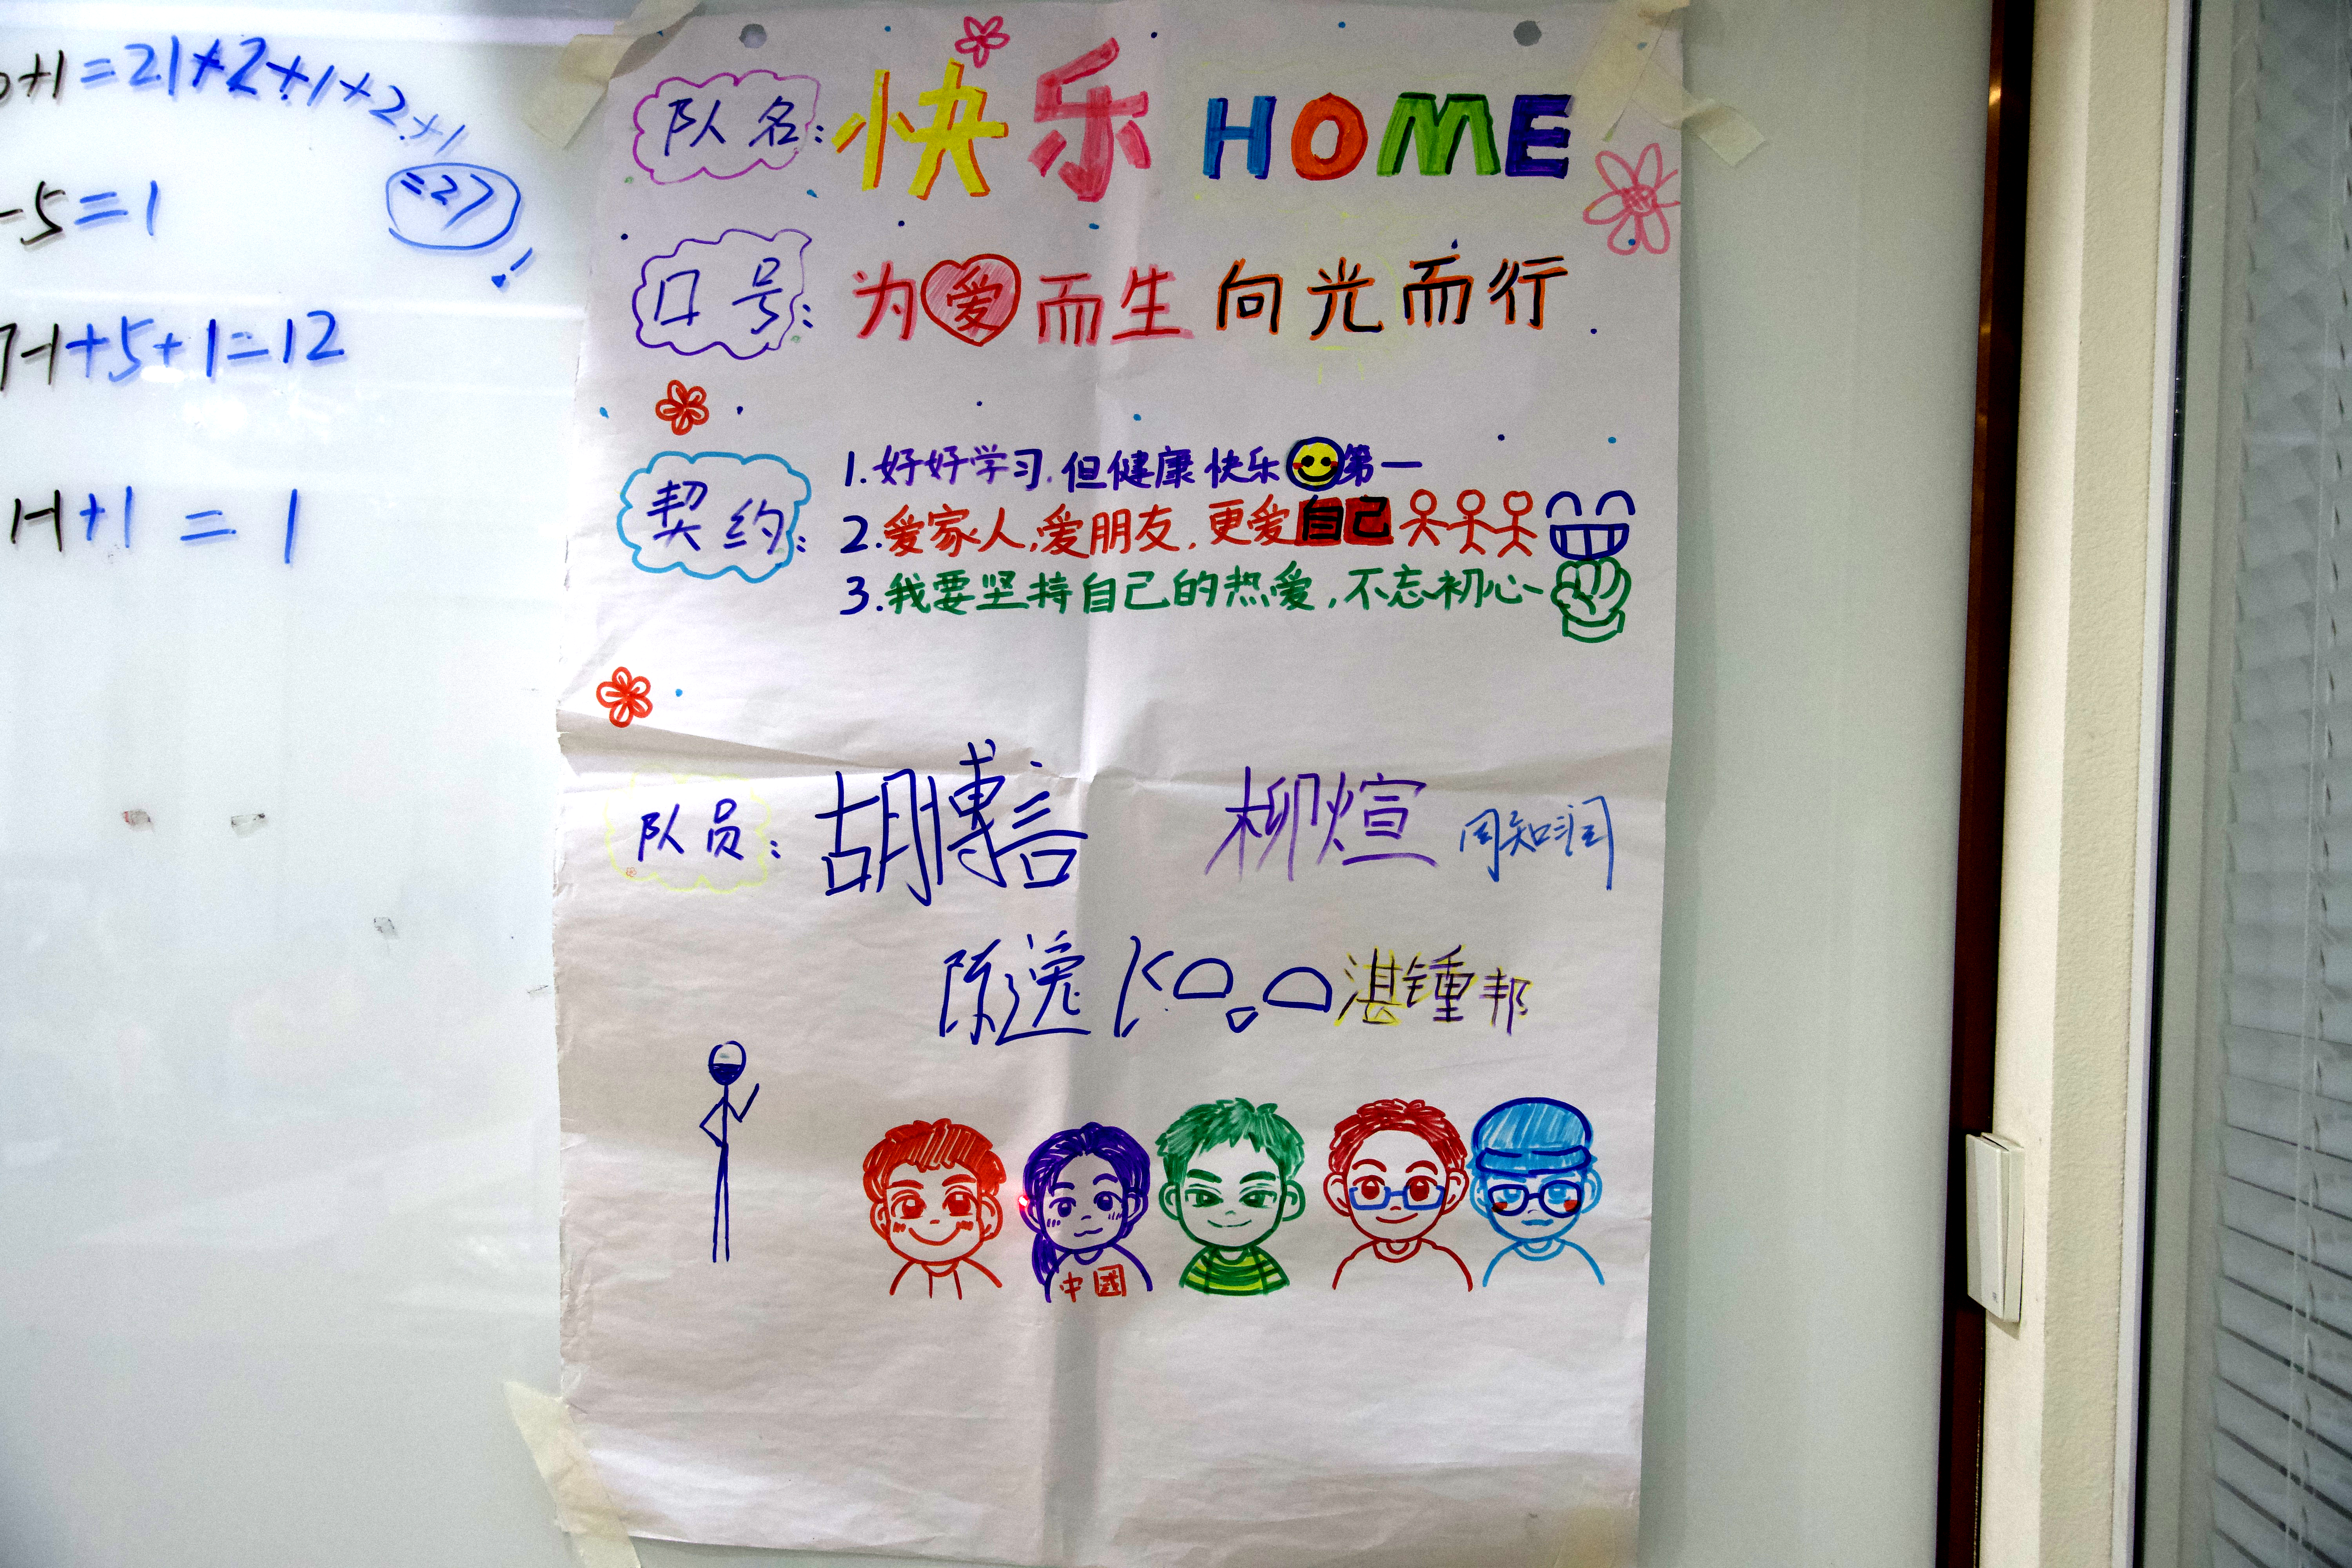 +1=21+2+1+2+1
=27
-5=1
!
7-1+5+1=12
1-1+1=1
队名:快乐 HOME
口号:为爱而生 向光而行
契约:
1.好好学习.但健康快乐第一
2.爱家人,爱朋友,更爱自己
3.我要坚持自己的热爱,不忘初心~
队员:胡博言 柳煊 周知润
陈逸 湛锺邦
中國